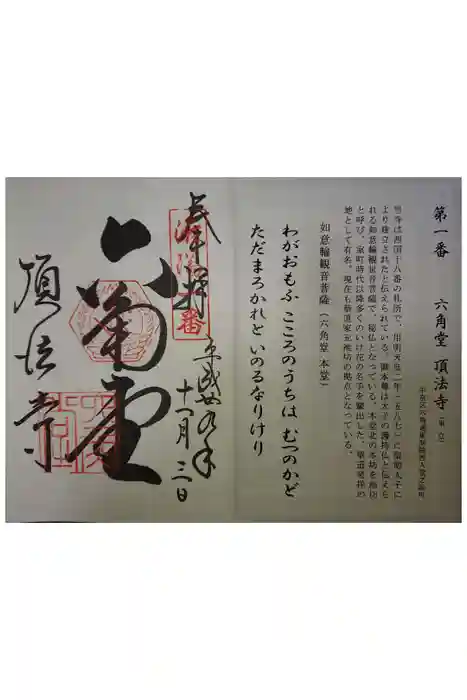 第一番 六角堂 頂法寺（東京）
中京区六角通東洞院西入堂之前町
当寺は洛陽三十三所の札所で、用明天皇二年（五八七）に聖徳太子に
より建立されたと伝えられている。御本尊は太子の護持仏と伝えら
れる如意輪観世音菩薩で、秘仏となっている。本堂北の本坊を池坊
と呼び、室町時代以降多くのいけ花の名手を輩出した。華道発祥の
地として有名。現在も華道家元池坊の拠点となっている。
如意輪観音菩薩（六角堂 本堂）
わがおもふ こころのうちは むつのかど
ただまろかれと いのるなりけり
奉拝
洛陽第一番
平成廿九年
十一月三日
六角堂
頂法寺